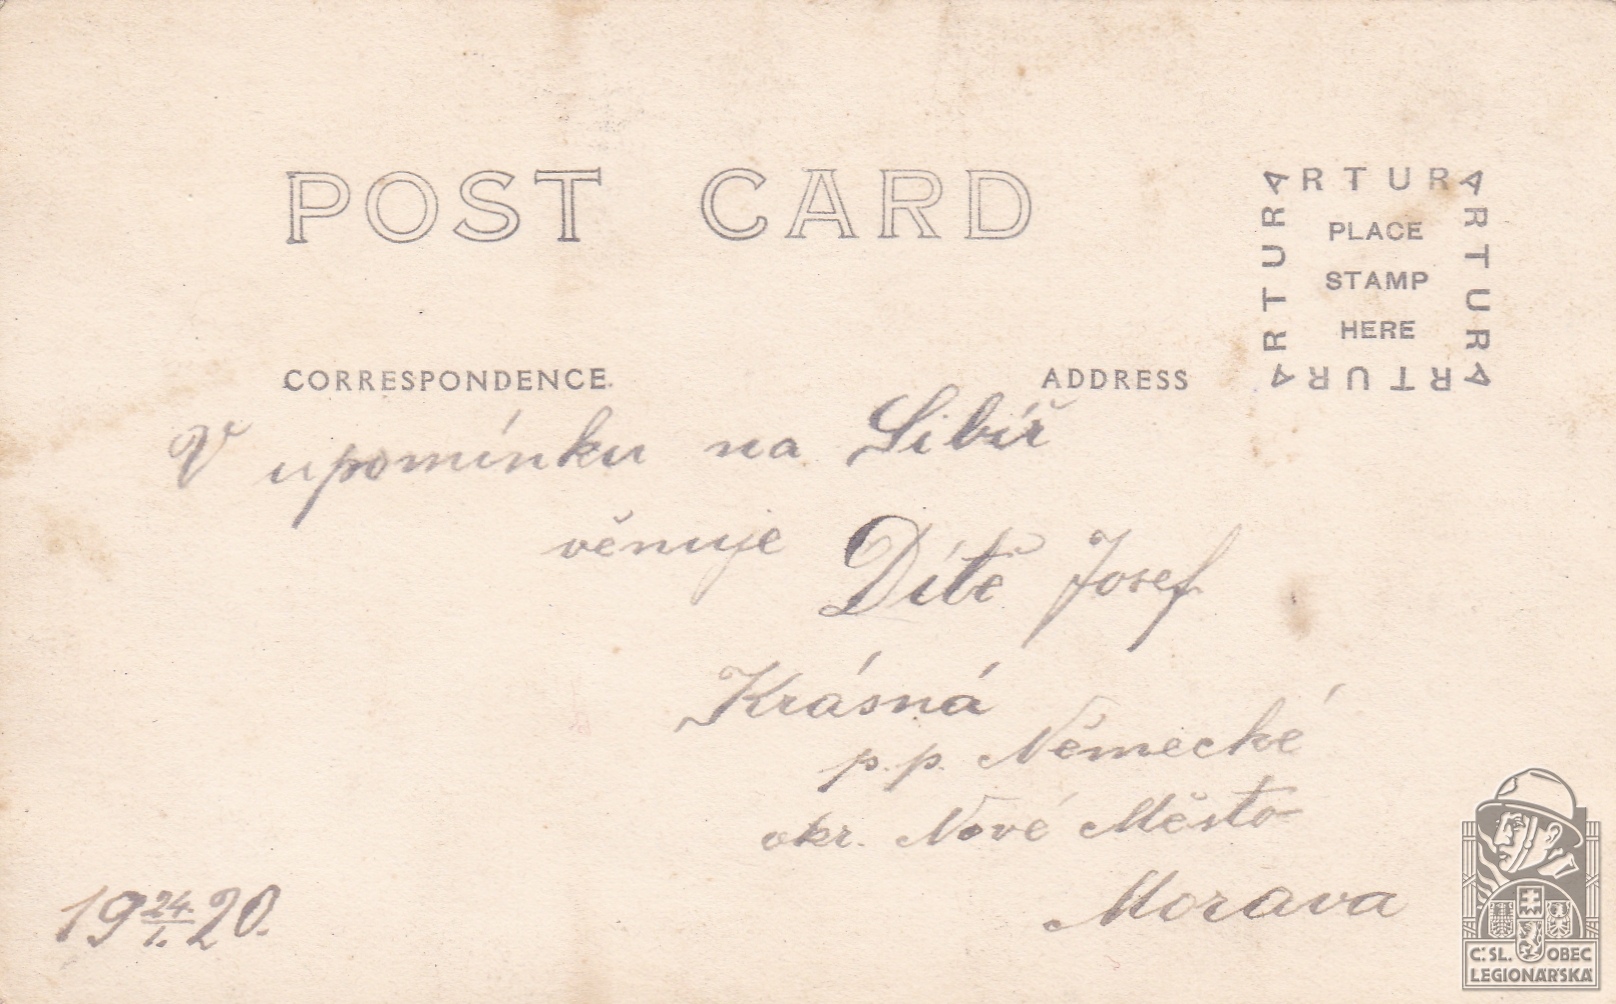 POST CARD
ARTURA
ARTURA
ARTURA
ARTURA
PLACE
STAMP
HERE
CORRESPONDENCE.
ADDRESS
V upomínku na Sibiř
věnuje Dítě Josef
Krásná
p.p. Německé
okr. Nové Město
Morava
19 24./1. 20.
Č.SL. OBEC
LEGIONÁŘSKÁ